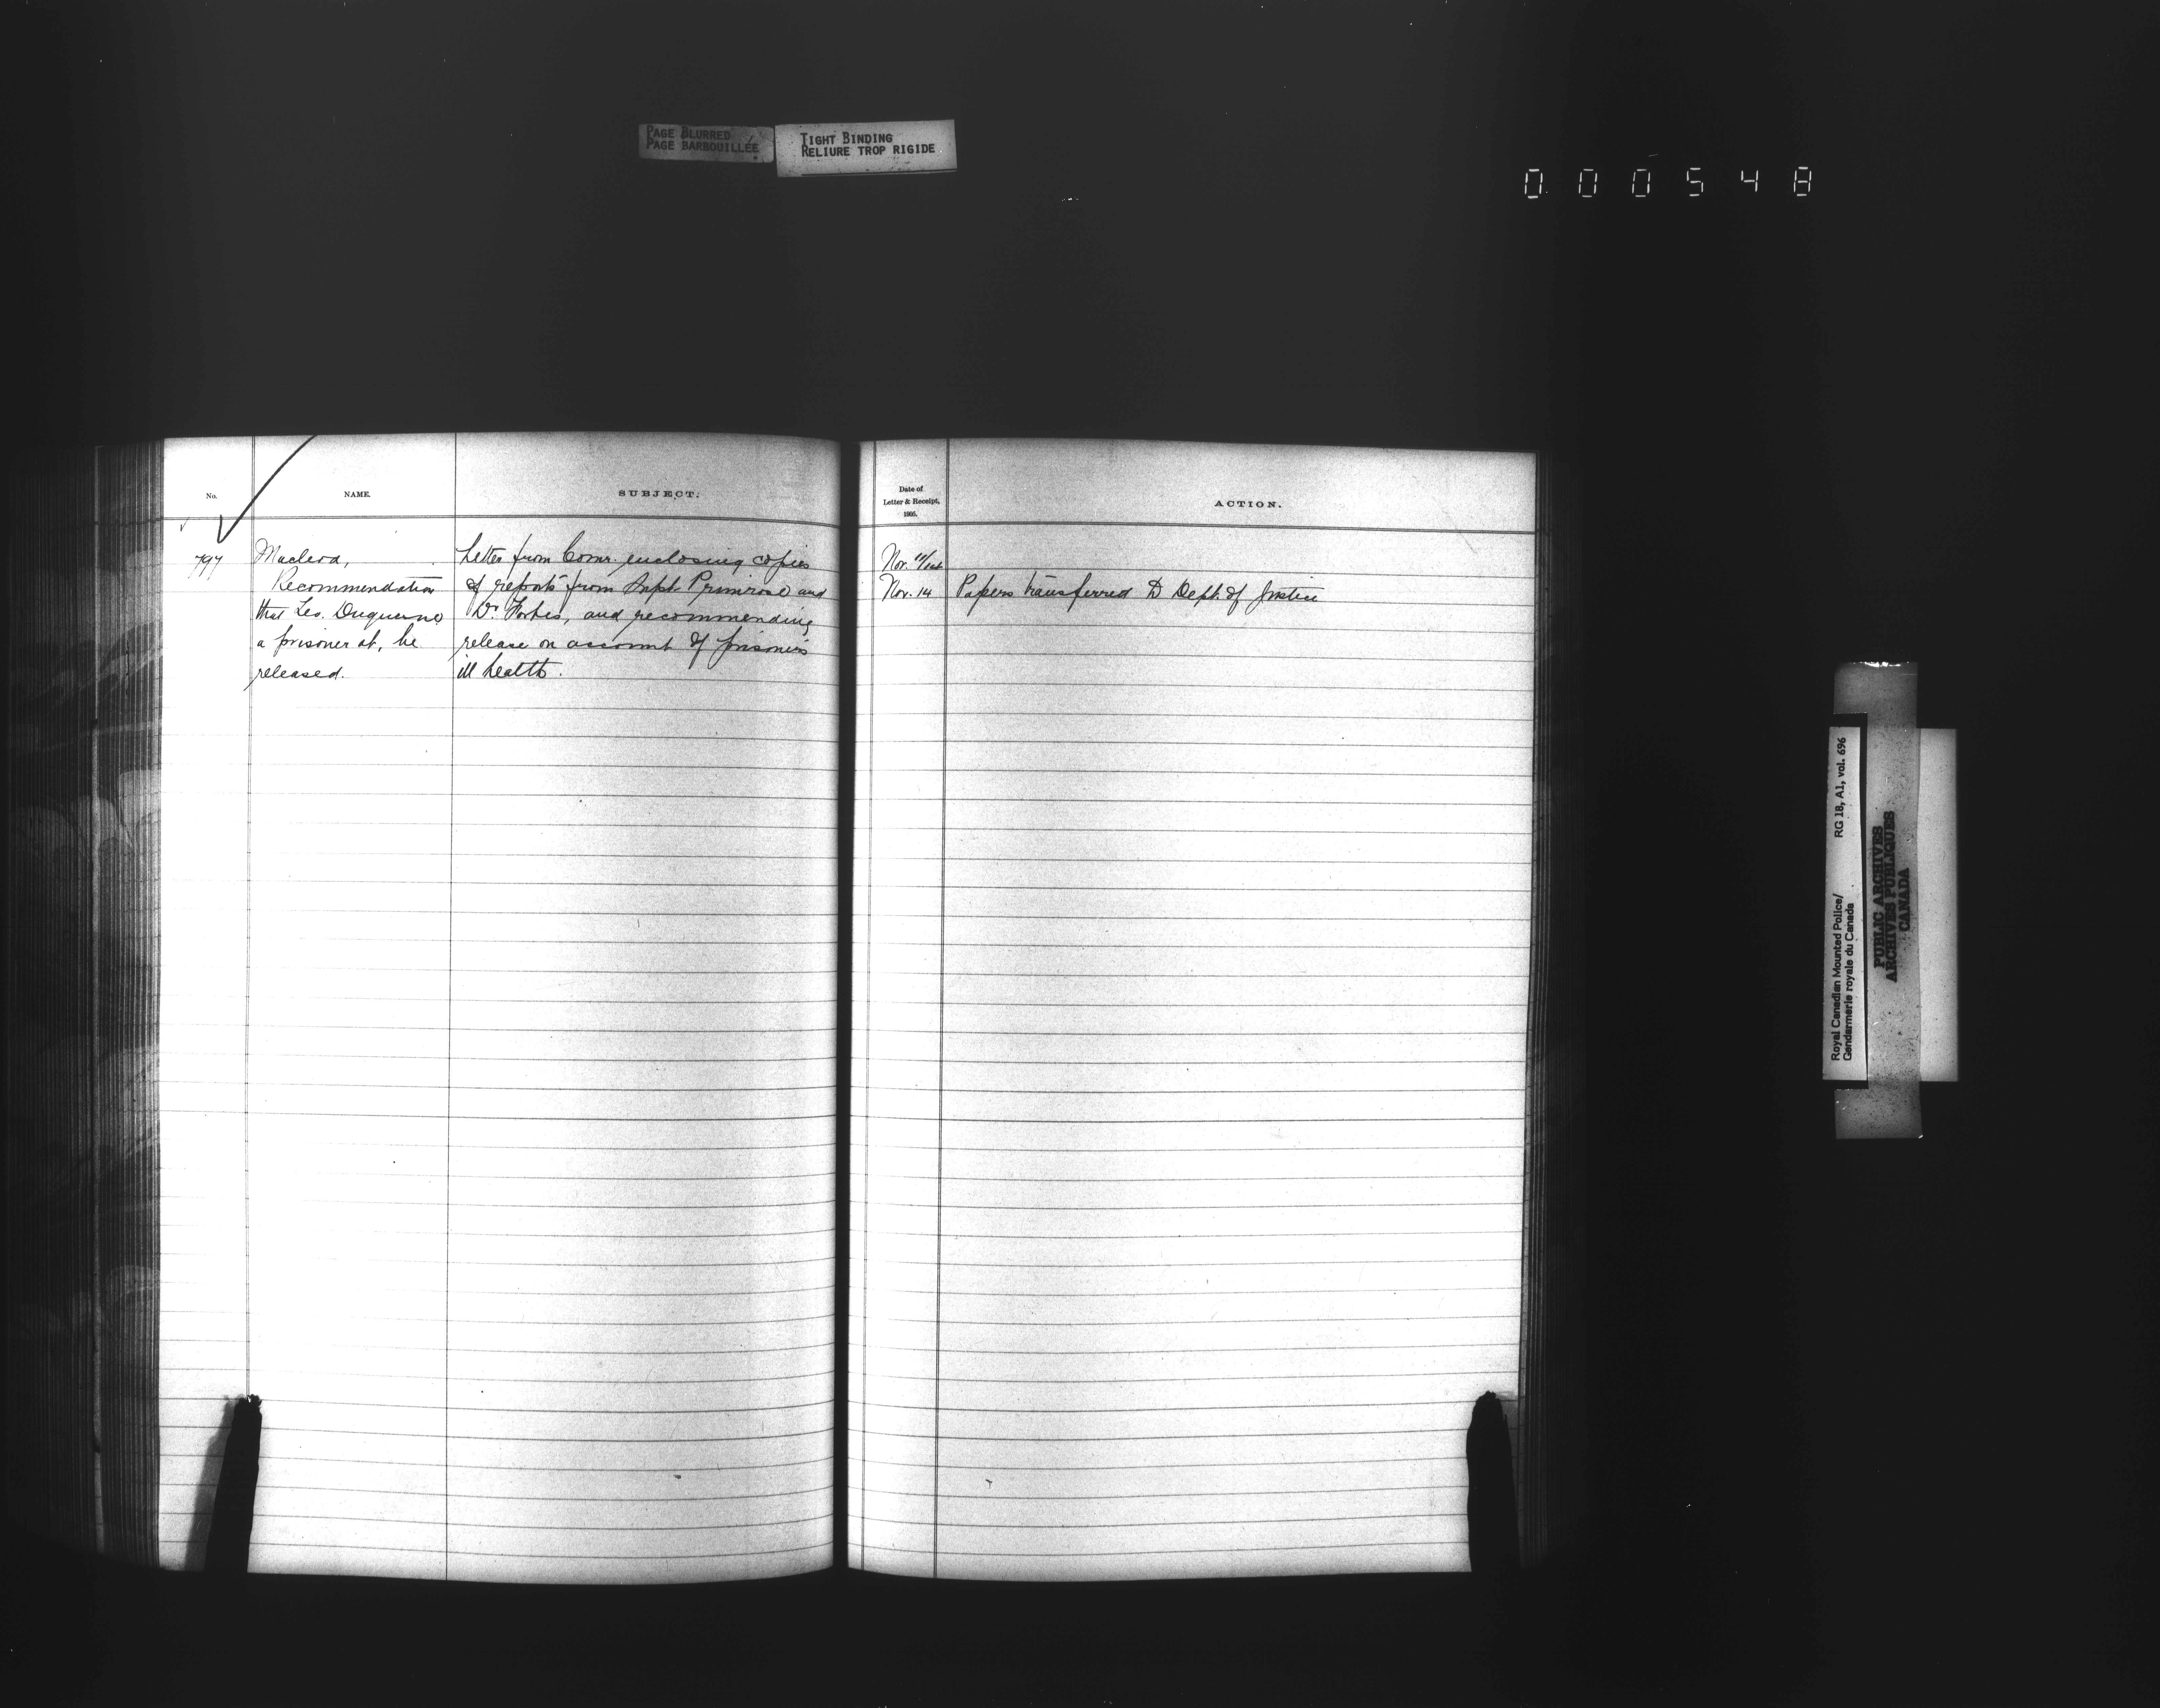 PAGE BLURRED
PAGE BARBOUILLÉE
TIGHT BINDING
RELIURE TROP RIGIDE
000548
No.
NAME.
SUBJECT.
797
Macleod,
Recommendation
that Leo. Duquesne
a prisoner at, be
released.
Letter from Comr. enclosing copies
of reports from Supt. Primrose and
Dr. Forbes, and recommending
release on account of prisoner's
ill health.
Date of
Letter & Receipt,
1905.
ACTION.
Nov.
Nov. 14 Papers transferred to Dept. of Justice
Royal Canadian Mounted Police/ RG 18, A1, vol. 696
Gendarmerie royale du Canada
PUBLIC ARCHIVES
ARCHIVES PUBLIQUES
CANADA